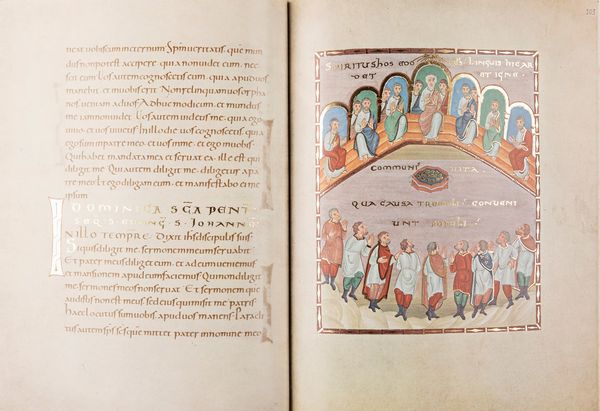 neat vobiscum in eternum. Spm veritatis. quem mun
dus non potest accipere. quia non videt eum. nec
scit eum. Vos autem cognoscetis eum. quia apud vos
manebit et in vobis erit. Non relinquam vos orpha
nos. veniam ad vos. Adhuc modicum. et mundus
me iam non videt. Vos autem videtis me. quia ego
vivo. et vos vivetis. In illo die vos cognoscetis. quia
ego sum in patre meo. et vos in me. et ego in vobis.
Qui habet mandata mea et servat ea. ille est qui
diligit me. Qui autem diligit me. diligetur a pa
tre meo. et ego diligam eum. et manifestabo ei me
ipsum
DOMINICA SCA PENT
SEQ S EVANG S IOHANN
IN ILLO TEMPRE. Dixit ihs discipulis suis
Si quis diligit me. sermonem meum servabit.
Et pater meus diliget eum. et ad eum veniemus
et mansionem apud eum faciemus. Qui non diligit me.
sermones meos non servat. Et sermonem quem
audistis non est meus. sed eius qui misit me patris
haec locutus sum vobis. apud vos manens. Paracli
tus autem sps scs quem mittet pater in nomine meo
103
SPIRITUS HOS LINGUIS HIC AR
DET ET IGNE
COMMUNIS VITA
QUA CAUSA CONVENI
UNT POPULI